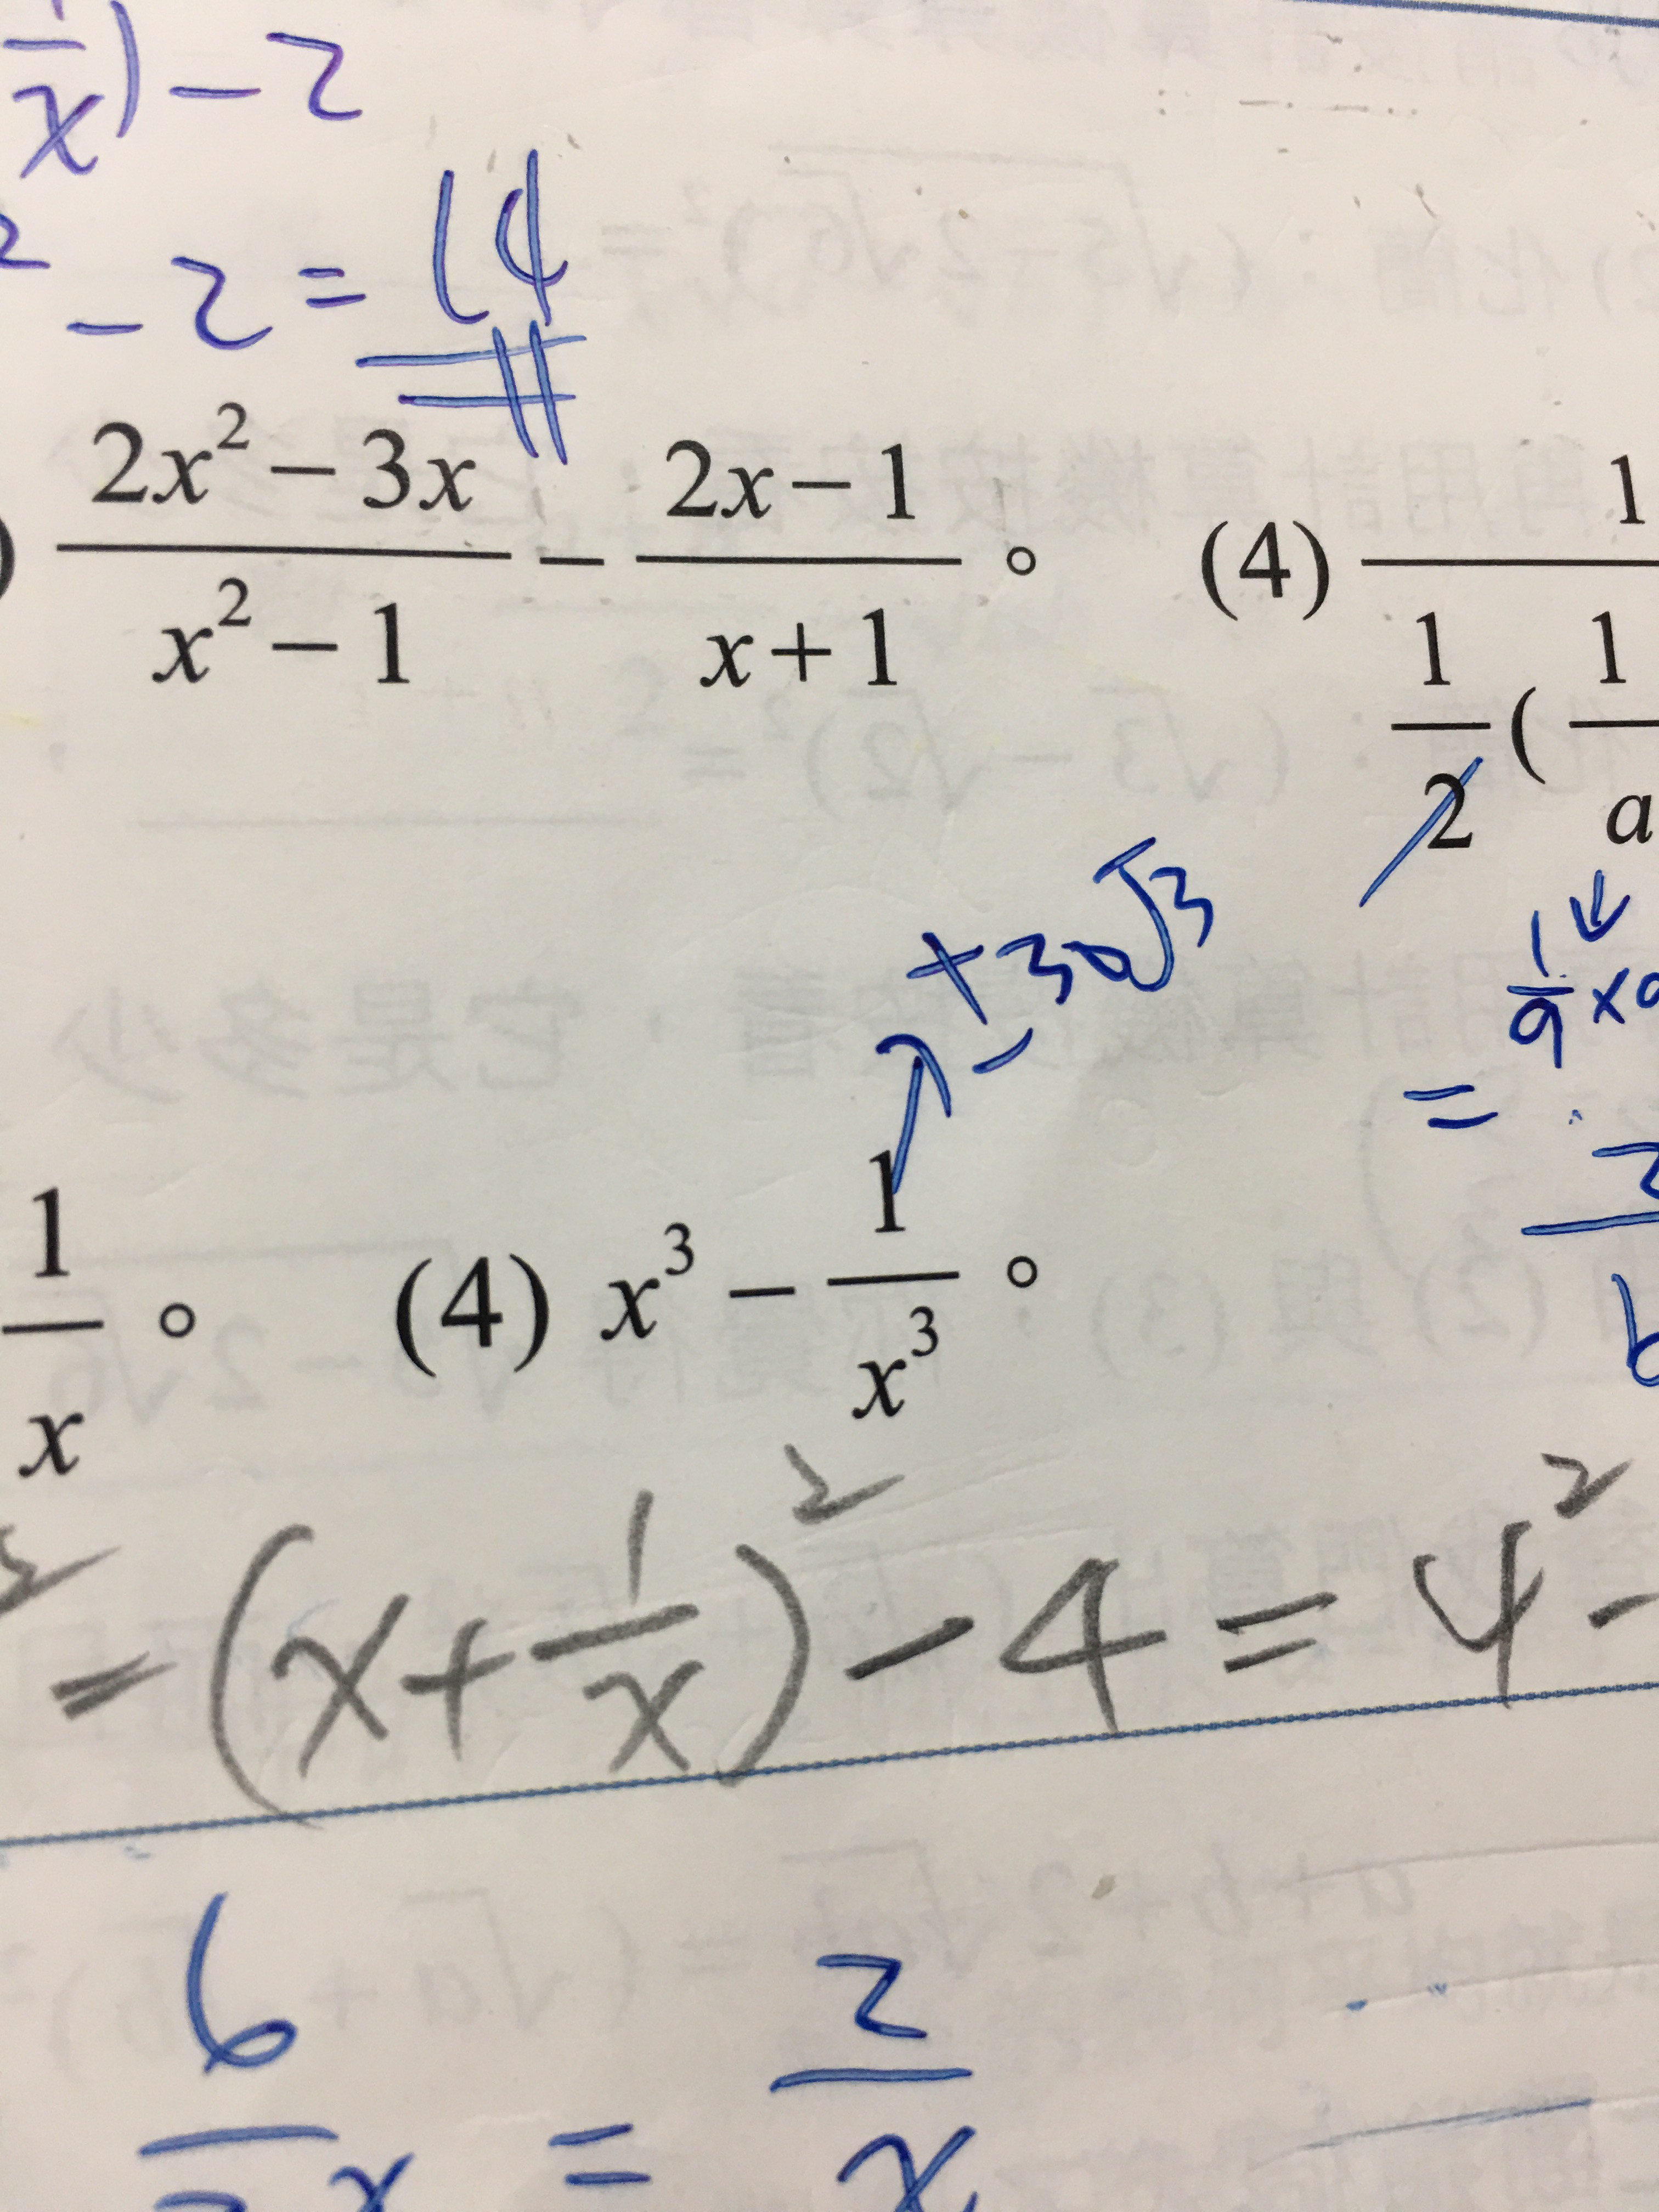 1/x) − 2
2 − 2 = 14
(2x² − 3x)/(x² − 1) − (2x − 1)/(x + 1)。 (4) 1
1/2 ( 1/a
+30√3
−
1/9 ×
=
2
b
1/x。 (4) x³ − 1/x³。
² = (x + 1/x)² − 4 = 4² −
6 x = 2/x